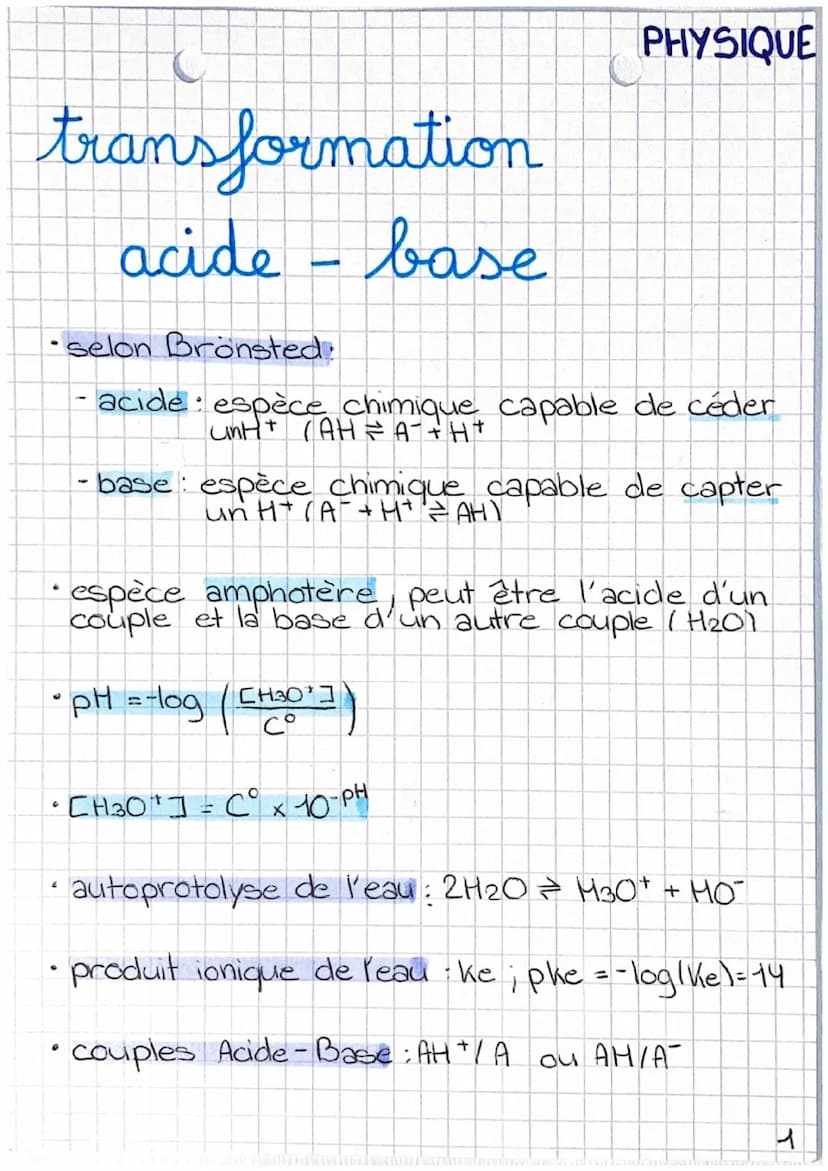 PHYSIQUE
transformation
acide - base
• selon Brönsted:
- acide : espèce chimique capable de céder
un H⁺ (AH ⇌ A⁻ + H⁺
- base : espèce chimique capable de capter
un H⁺ (A⁻ + H⁺ ⇌ AH)
• espèce amphotère, peut être l'acide d'un
couple et la base d'un autre couple (H2O)
• pH = -log ([H3O⁺] / C°)
• [H3O⁺] = C° x 10⁻ᵖᴴ
• autoprotolyse de l'eau : 2H2O ⇌ H3O⁺ + HO⁻
• produit ionique de l'eau : Ke ; pke = -log(Ke) = 14
• couples Acide-Base : AH⁺/A ou AH/A⁻
1